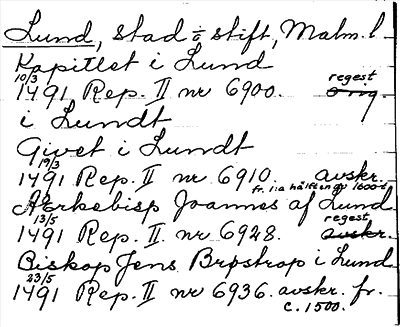 Lund, stad o stift, Malm. l
Kapitlet i Lund
10/3 regest
1491 Rep. II nr 6900. orig.
i Lundt
Givet i Lundt
19/3
1491 Rep. II nr 6910. avskr.
fr. 1:a hälften av 1600-t
Ærkebisp Joannes af Lund
13/5 regest
1491 Rep. II nr 6928. avskr.
Biskop Jens Brostrop i Lund
23/5
1491 Rep. II nr 6936. avskr. fr.
c. 1500.